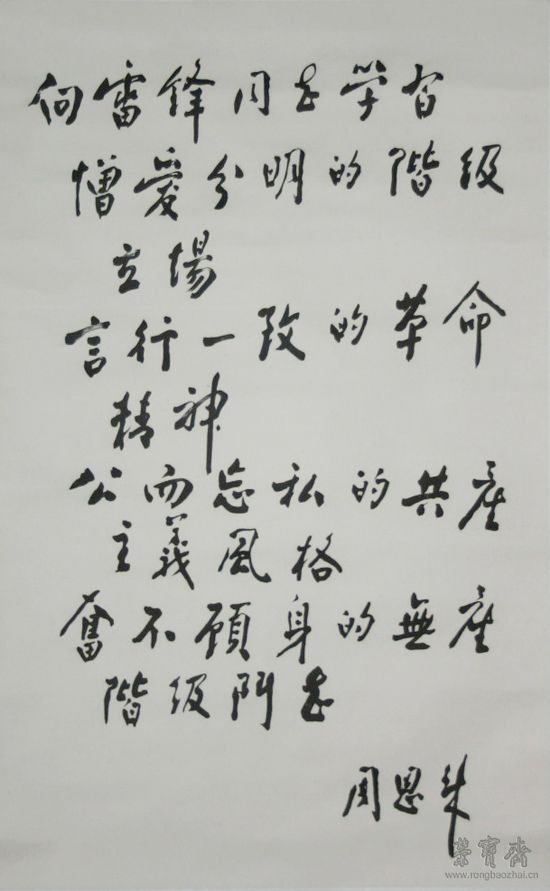 向雷锋同志学习
憎爱分明的階级
立場
言行一致的革命
精神
公而忘私的共産
主義風格
奮不顾身的無産
階级鬥志
周恩来
荣寳齋
www.rongbaozhai.cn